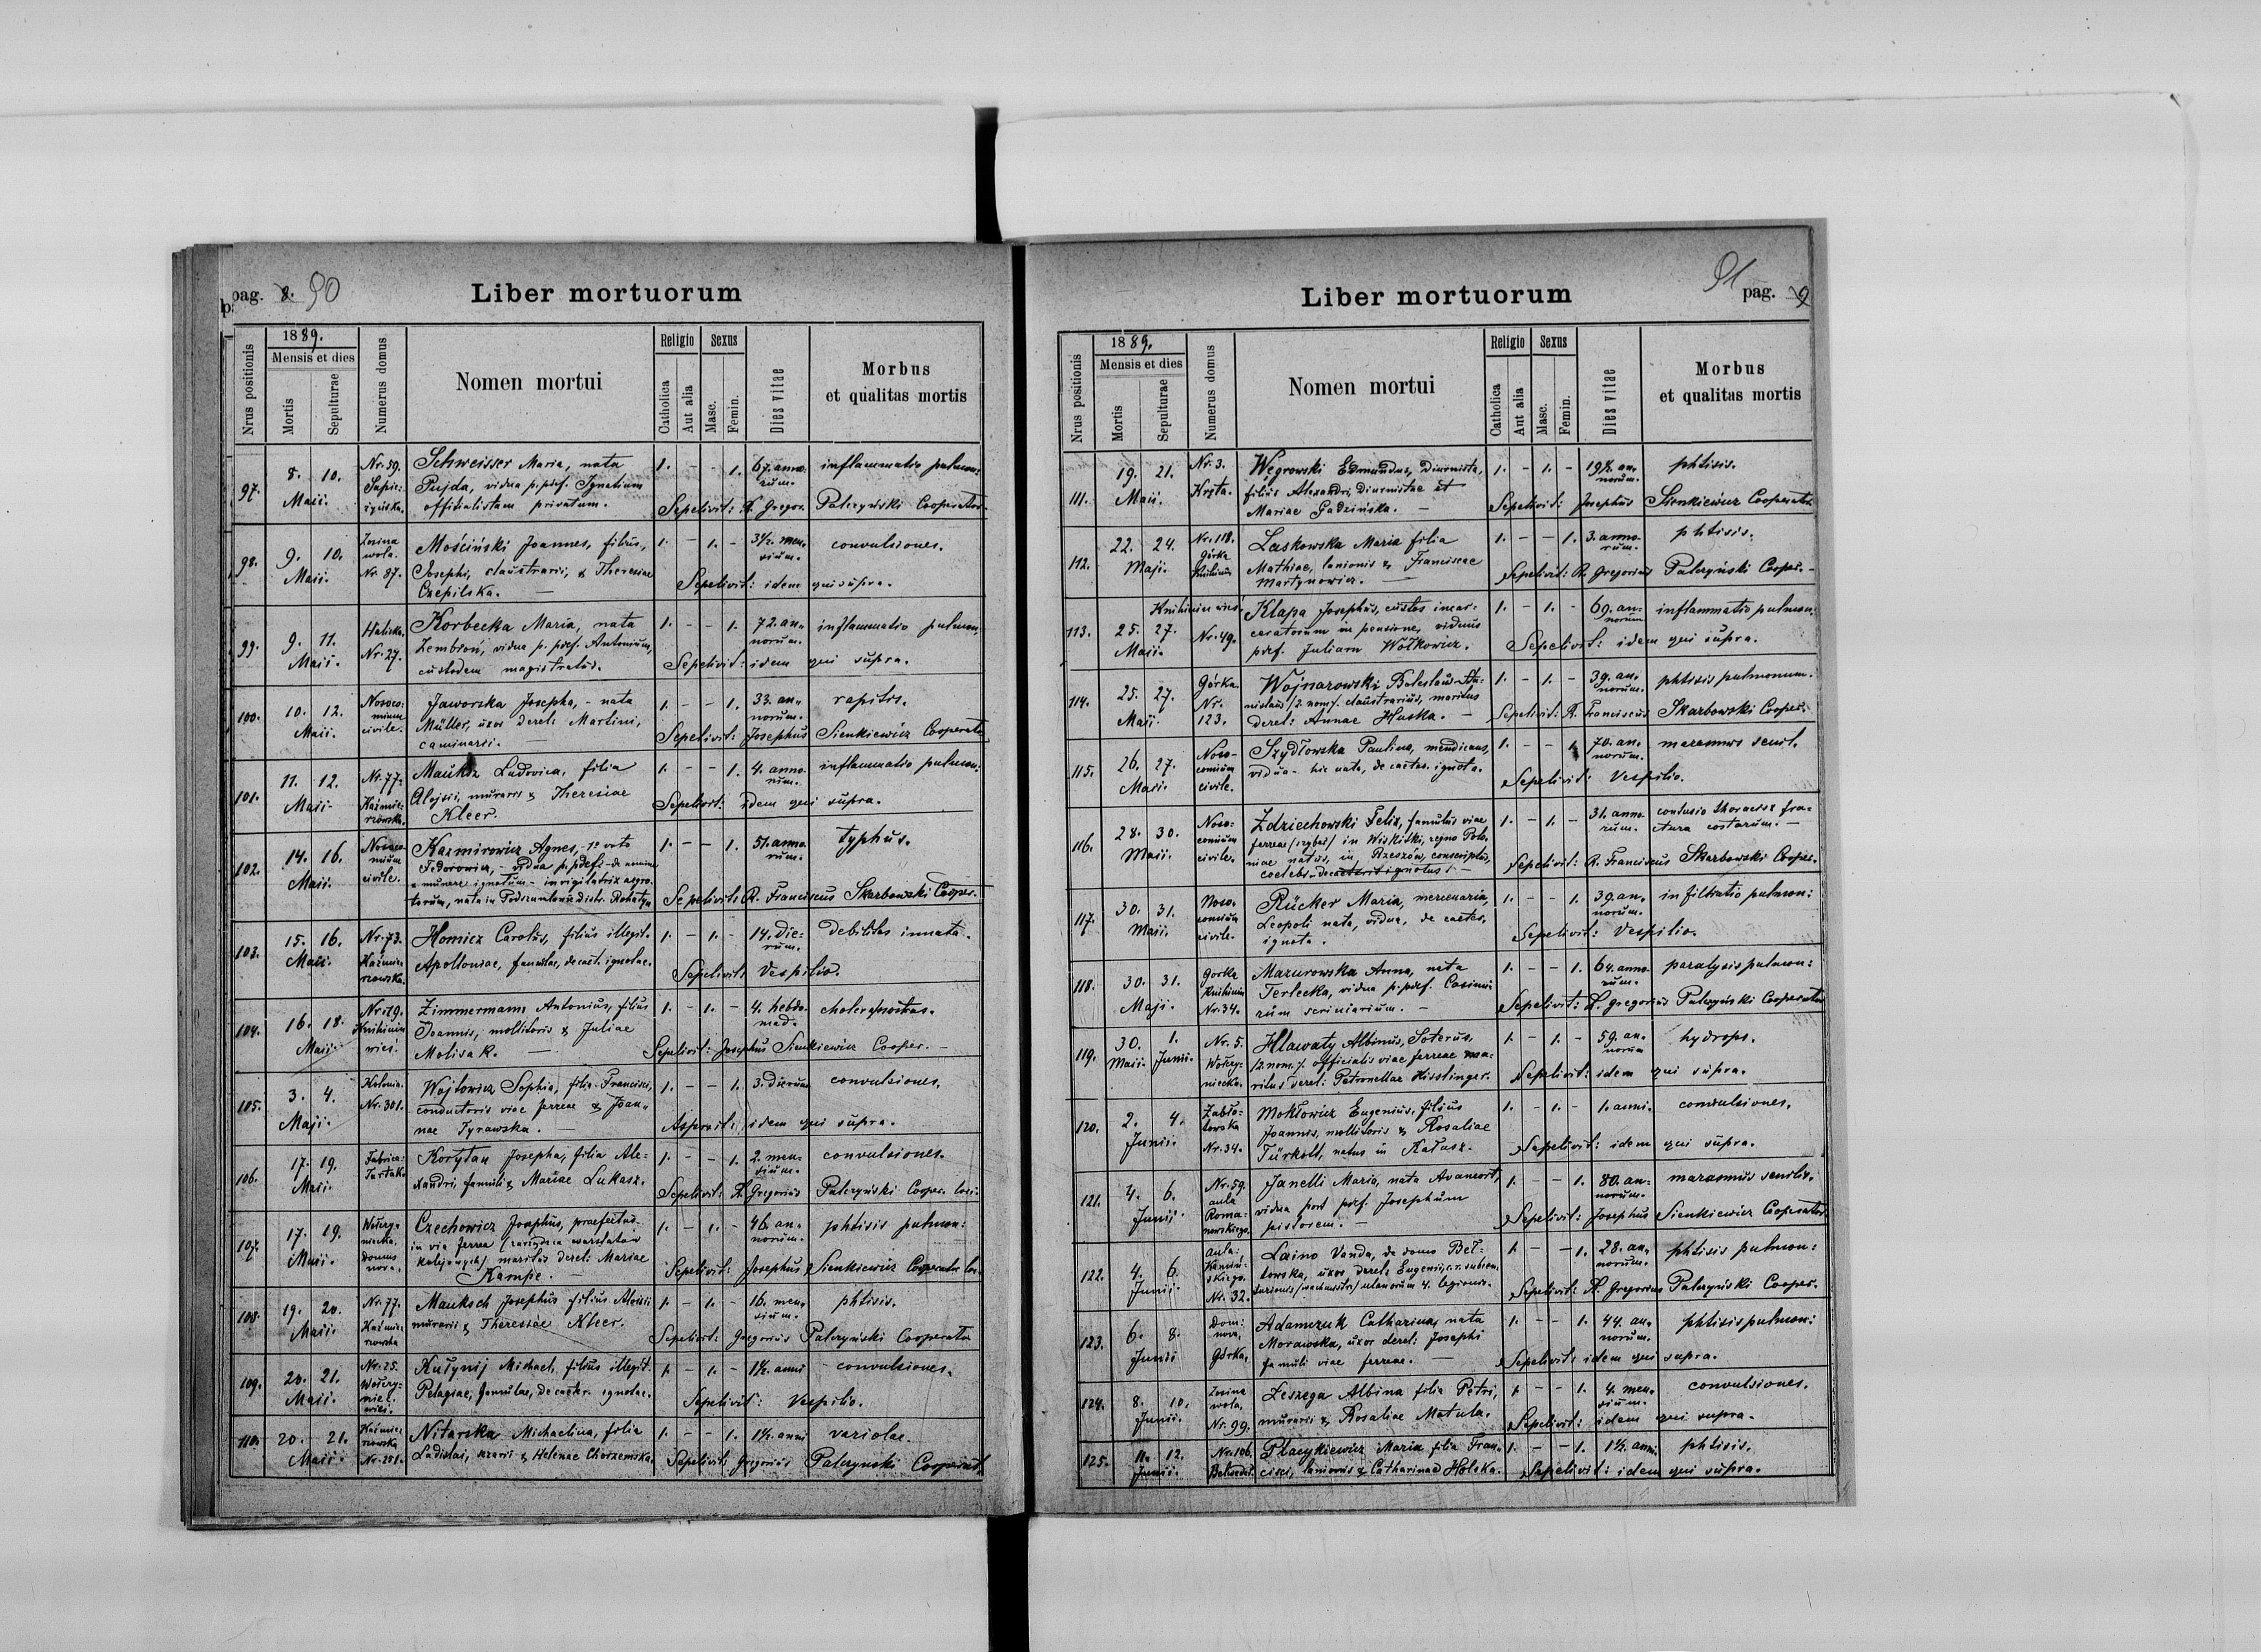 pag. 8. 90
Liber mortuorum
Nrus positionis
1889.
Mensis et dies
Mortis
Sepulturae
Numerus domus
Nomen mortui
Religio
Catholica
Aut alia
Sexus
Masc.
Femin.
Dies vitae
Morbus
et qualitas mortis
97. 8. 10. Maii. Nr. 59. Schweisser Maria, nata 1. - - 1. 67. anno- inflammatio pulmon:
Pujda, vidua p. pdef. Ignatium rum.
officialistam privatum. Sepelivit: R. Gregor. Palczyński Cooperator.
98. 9. 10. Maii. Zosina wola. Nr. 87. Mościński Joannes, filius, 1. - 1. - 3½ men- convulsiones.
Josephi, claustrarii, & Theresiae sium.
Czepilska. — Sepelivit: idem qui supra.
99. 9. 11. Maii. Halicka. Nr. 27. Korbecka Maria, nata 1. - - 1. 72. an- inflammatio pulmon.
Zembroń, vidua p. pdef. Antonium, norum.
custodem magistratus. Sepelivit: idem qui supra.
100. 10. 12. Maii. Nosoco- mium civile. Jaworska Josepha, - nata 1. - - 1. 33. an- raptus.
Müller, uxor derel: Martini, norum.
caminarii. Sepelivit: Josephus Sienkiewicz Cooperator
101. 11. 12. Maii. Nr. 77. Kaźmie- rzowska. Ludovica, filia 1. - - 1. 4. anno- inflammatio pulmon:
Alojsii, murarii & Theresiae rum.
Kleer. Sepelivit: idem qui supra.
102. 14. 16. Maii. Nosoco- mium civile. Kazmirowicz Agnes, - 1º voto 1. - - 1. 51. anno- typhus.
Fedorowicz, - vidua p. pdef: - de nomine rum.
& munere ignotum - invigilatrix aegro-
torum, nata in distr. Rohatyn Sepelivit: R. Franciscus Skarbowski Cooper.
103. 15. 16. Maii. Nr. 73. Kaźmie- rzowska. Homicz Carolus, filius illegit. 1. - 1. - 14. die- Debilitas innata.
Apolloniae, famulae, de caet. ignotae. rum.
Sepelivit: Vespilio.
104. 16. 18. Maii. Nr. 179. Knihinin wieś. Zimmermann Antonius, filius 1. - 1. - 4. hebdo-
Joannis, mollitoris & Juliae mad.
Molisak. — Sepelivit: Josephus Sienkiewicz Cooper. -
105. 3. 4. Maji. Kolonia. Nr. 301. Wojtowicz Sophia, filia Francisci, 1. - - 1. 3. dierum convulsiones.
conductoris viae ferreae & Joan-
nae Tyrawska. — Aspersit: idem qui supra.
106. 17. 19. Maii. Fabrica: Tartak. Korytan Josepha, filia Ale- 1. - - 1. 2. men- convulsiones.
xandri, famuli & Mariae Lukasz. sium.
Sepelivit: R. Gregorius Palczyński Cooper. loci.
107. 17. 19. Maii. Domus nova. Czechowicz Josephus, praefectus 1. - 1. - 46. an- phtisis pulmon:
in via ferrea (zarządca warstatów norum.
kolejowych) maritus derel: Mariae
Kampe. — Sepelivit: Josephus Sienkiewicz Cooperator loc.
108. 19. 20. Maii. Nr. 77. Kaźmie- rzowska Mauksch Josephus filius Aloisii 1. - 1. - 16. men- phtisis.
murarii & Theresiae Kleer. sium.
Sepelivit: Gregorius Palczyński Cooperator
109. 20. 21. Maii. Nr. 25. Kutynij Michael, filius illegit. 1. - 1. - 1½. anni convulsiones.
Pelagiae, famulae, de caeter. ignotae.
Sepelivit: Vespilio.
110. 20. 21. Maii. Kaźmie- rzowska Nr. 251. Nitarska Michaelina, filia 1. - - 1. 1½. anni variolae.
Ladislai, & Helenae Chorzemska. Sepelivit: Gregorius Palczynski Cooperat.
91 pag. 9
Liber mortuorum
Nrus positionis
1889.
Mensis et dies
Mortis
Sepulturae
Numerus domus
Nomen mortui
Religio
Catholica
Aut alia
Sexus
Masc.
Femin.
Dies vitae
Morbus
et qualitas mortis
111. 19. 21. Maii. Nr. 3. Kręta. Węgrowski Edmundus, Diurnista, 1. - 1. - 19½ an- phtisis.
filius Alexandri, Diurnistae et norum.
Mariae Gadzińska. — Sepelivit: Josephus Sienkiewicz Cooperator
112. 22. 24. Maji. Nr. 118. Górka Knihinin Laskowska Maria filia 1. - - 1. 3. anno- phtisis.
Mathiae, lanionis & Franciscae rum.
Martynowicz. — Sepelivit: R. Gregorius Palczyński Cooper. -
113. 25. 27. Maii. Knihinin wieś Nr. 49. Klapa Josephus, custos incar- 1. - 1. - 69. an- inflammatio pulmon:
ceratorum in pensione, viduus norum
pdef. Juliam Wołkowicz. Sepelivit: idem qui supra.
114. 25. 27. Maii. Górka Nr. 123. Wojnarowski Boleslaus Sta- 1. - 1. - 39. an- phtisis pulmonum.
nislaus (2. nom). claustrarius, maritus norum.
derel: Annae Huska. — Sepelivit: R. Franciscus Skarbowski Cooper.
115. 26. 27. Maii. Noso- comium civile. Szydłowska Paulina, mendicans, 1. - - 1. 70. an- marasmus senil.
vidua - hic nata, de caeter. ignota. norum.
Sepelivit: Vespilio.
116. 28. 30. Maii. Noso- comium civile. Zdziechowski Felix, famulus viae 1. - 1. - 31. anno- contusio thoracis & fra-
ferreae in Wiskitki, regno Polo- rum. ctura costarum. —
niae natus, in Rzeszów, conscriptus,
coelebs - de caeteris ignotus. — Sepelivit: R. Franciscus Skarbowski Cooper.
117. 30. 31. Maii. Noso- comium civile. Rücker Maria, mercenaria, 1. - - 1. 39. an- infiltratio pulmon:
Leopoli nata, vidua, de caeter. norum.
ignota. Sepelivit: Vespilio.
118. 30. 31. Maji. Gorka Knihinin Nr. 34. Mazurowska Anna, nata 1. - - 1. 64. anno- paralysis pulmon:
Terlecka, vidua p. pdef. Casimi- rum.
rum scriniarium. — Sepelivit: R. Gregorius Palczyński Cooperator
119. 30. Maii. 1. Junii. Nr. 5. Hlawaty Albinus, Soterus, 1. - 1. - 59. an- hydrops.
(2. nom). officialis viae ferreae ma- norum
ritus derel: Petronellae Hisslinger. Sepelivit: idem qui supra.
120. 2. 4. Junii. Zabło- towska Nr. 34. Mokłowicz Eugenius, filius 1. - 1. - 1. anni. convulsiones.
Joannis, mollitoris & Rosaliae
Türkott, natus in Kałusz. Sepelivit: idem qui supra.
121. 4. 6. Junii. Nr. 59. aula Roma- nowskiego. Janelli Maria, nata 1. - - 1. 80. an- marasmus senilis.
vidua post pdef. Josephum norum.
pistorem. — Sepelivit: Josephus Sienkiewicz Cooperator.
122. 4. 6. Junii. aula: Kamiń- skiego. Nr. 32. Laino Vanda, de domo Beł- 1. - - 1. 28. an- phtisis pulmon:
towska, uxor derel: Eugenii, norum.
ulanorum 4. legionis. Sepelivit: R. Gregorius Palczyński Cooper.
123. 6. 8. Junii Dom: nova, Górka, Adamczuk Catharina, nata 1. - - 1. 44. an- phtisis pulmon:
Morawska, uxor derel: Josephi norum.
famuli viae ferreae. — Sepelivit: idem qui supra.
124. 8. 10. Junii. Zosina wola, Nr. 99. Leszega Albina filia Petri, 1. - - 1. 4. men- convulsiones.
murarii & Rosaliae Matula. sium.
Sepelivit: idem qui supra.
125. 11. 12. Junii. Nr. 106. Belweder. Płacykiewicz Maria filia Fran- 1. - - 1. 1½. anni. phtisis.
cisci, lanionis & Catharinae Holska. Sepelivit: idem qui supra.